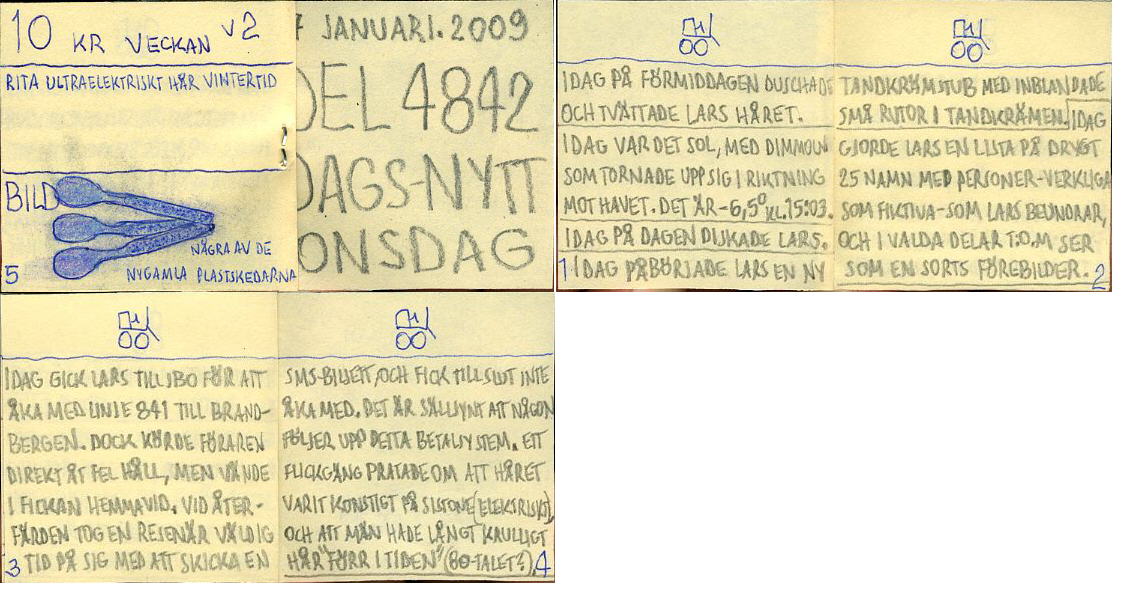 10 KR VECKAN V2
RITA ULTRAELEKTRISKT HÅR VINTERTID
BILD
NÅGRA AV DE
NYGAMLA PLASTSKEDARNA
5
7 JANUARI. 2009
DEL 4842
DAGS-NYTT
ONSDAG
IDAG PÅ FÖRMIDDAGEN DUSCHADE
OCH TVÄTTADE LARS HÅRET.
IDAG VAR DET SOL, MED DIMMOLN
SOM TORNADE UPP SIG I RIKTNING
MOT HAVET. DET ÄR -6,5° KL. 15:03.
IDAG PÅ DAGEN DISKADE LARS.
1 IDAG PÅBÖRJADE LARS EN NY
TANDKRÄMSTUB MED INBLANDADE
SMÅ RUTOR I TANDKRÄMEN. IDAG
GJORDE LARS EN LISTA PÅ DRYGT
25 NAMN MED PERSONER-VERKLIGA
SOM FIKTIVA-SOM LARS BEUNDRAR,
OCH I VALDA DELAR T.O.M SER
SOM EN SORTS FÖREBILDER. 2
IDAG GICK LARS TILL JBO FÖR ATT
ÅKA MED LINJE 841 TILL BRAND-
BERGEN. DOCK KÖRDE FÖRAREN
DIREKT ÅT FEL HÅLL, MEN VÄNDE
I FICKAN HEMMAVID. VID ÅTER-
FÄRDEN TOG EN RESENÄR VÄLDIG
3 TID PÅ SIG MED ATT SKICKA EN
SMS-BILJETT, OCH FICK TILL SLUT INTE
ÅKA MED. DET ÄR SÄLLSYNT ATT NÅGON
FÖLJER UPP DETTA BETALSYSTEM. ETT
FLICKGÄNG PRATADE OM ATT HÅRET
VARIT KONSTIGT PÅ SISTONE (ELEKTRISKT),
OCH ATT MÄN HADE LÅNGT KRULLIGT
HÅR "FÖRR I TIDEN" (80-TALET?). 4